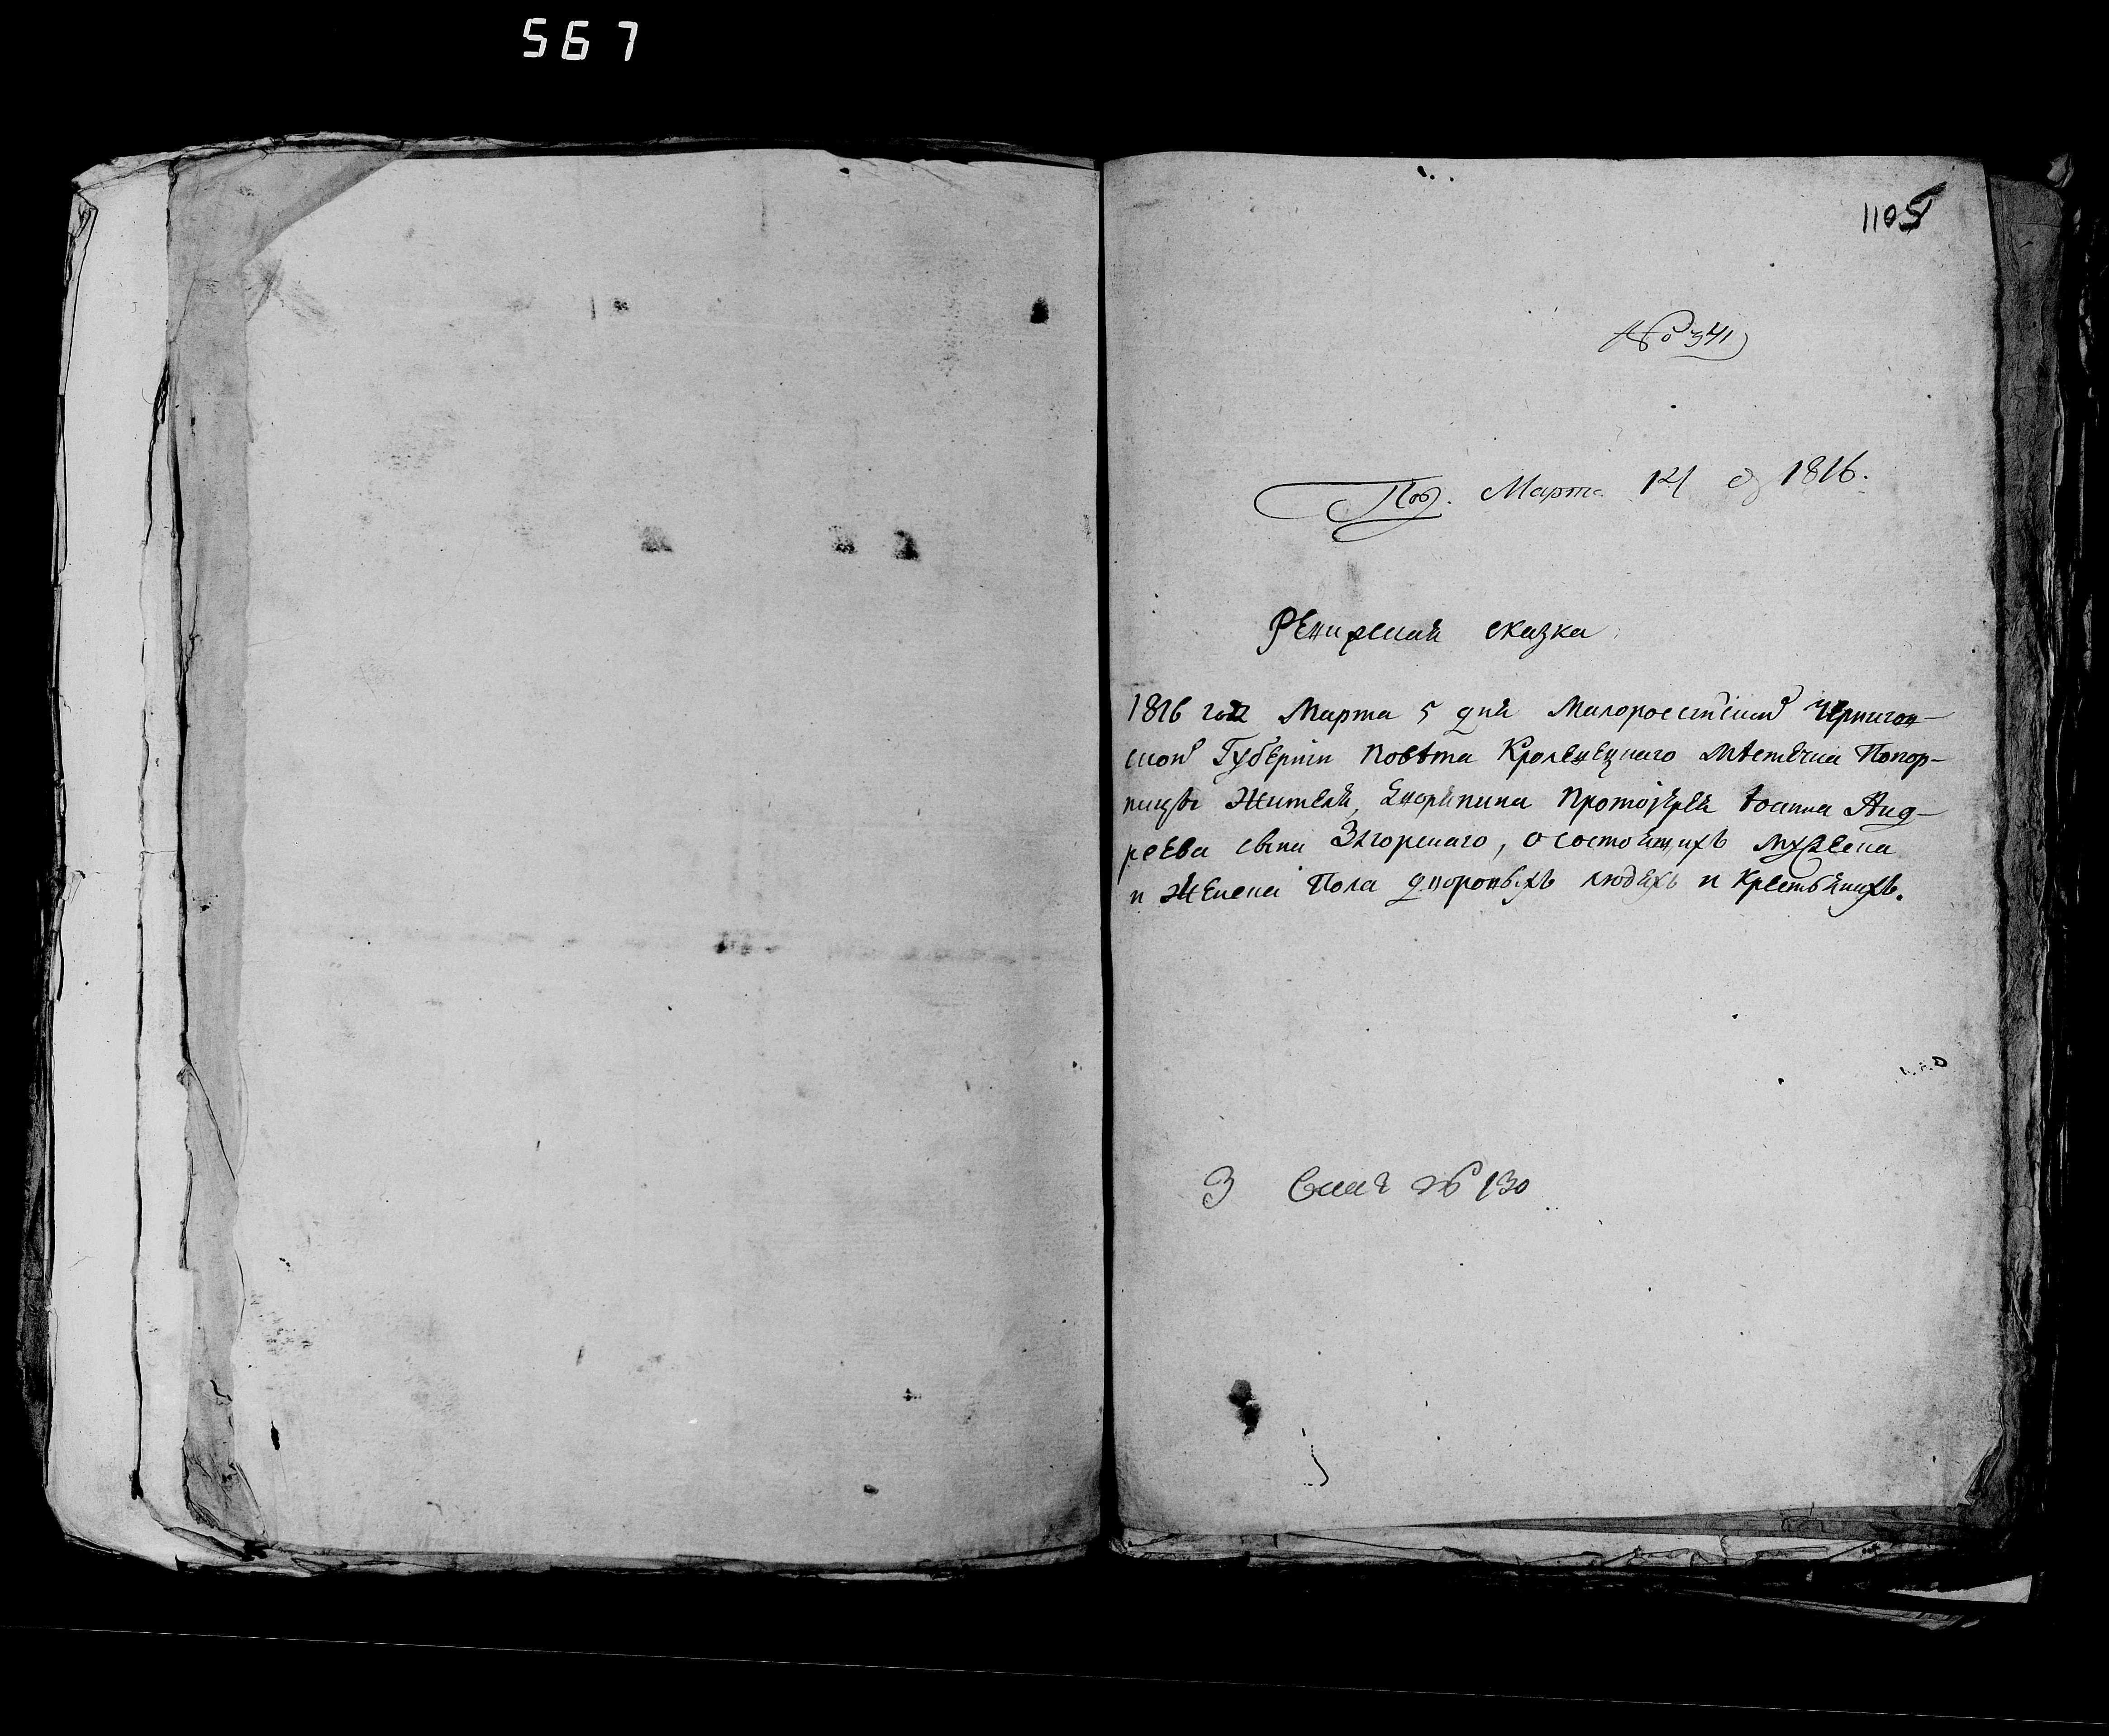 567
1105
№ 341
Под. Марта 14 д 1816.
Ревизская сказка
1816 года Марта 5 дня Малороссійской Чернигов-
ской Губерніи Повѣта Кролевецкаго мѣстечка Понор-
ницы Жителя, дворянина Протоіерея Іоанна Анд-
реева сына Згорскаго, о состоящихъ мужеска
и женска Пола дворовыхъ людяхъ и крестьянахъ.
3 № 130